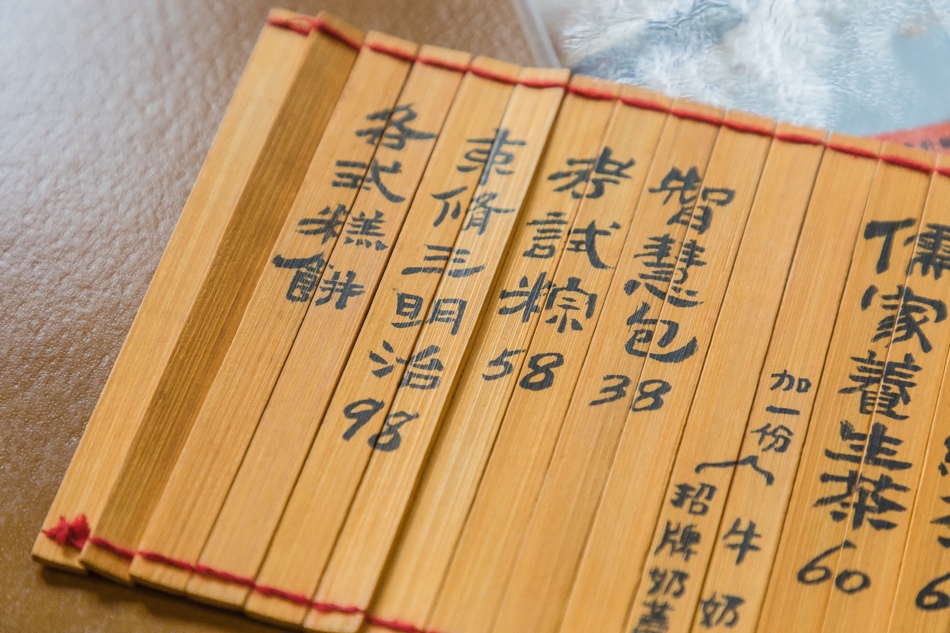 儒家養生茶60
加一份
牛奶
招牌奶蓋
智慧包38
考試粽58
束脩三明治98
各式糕餅